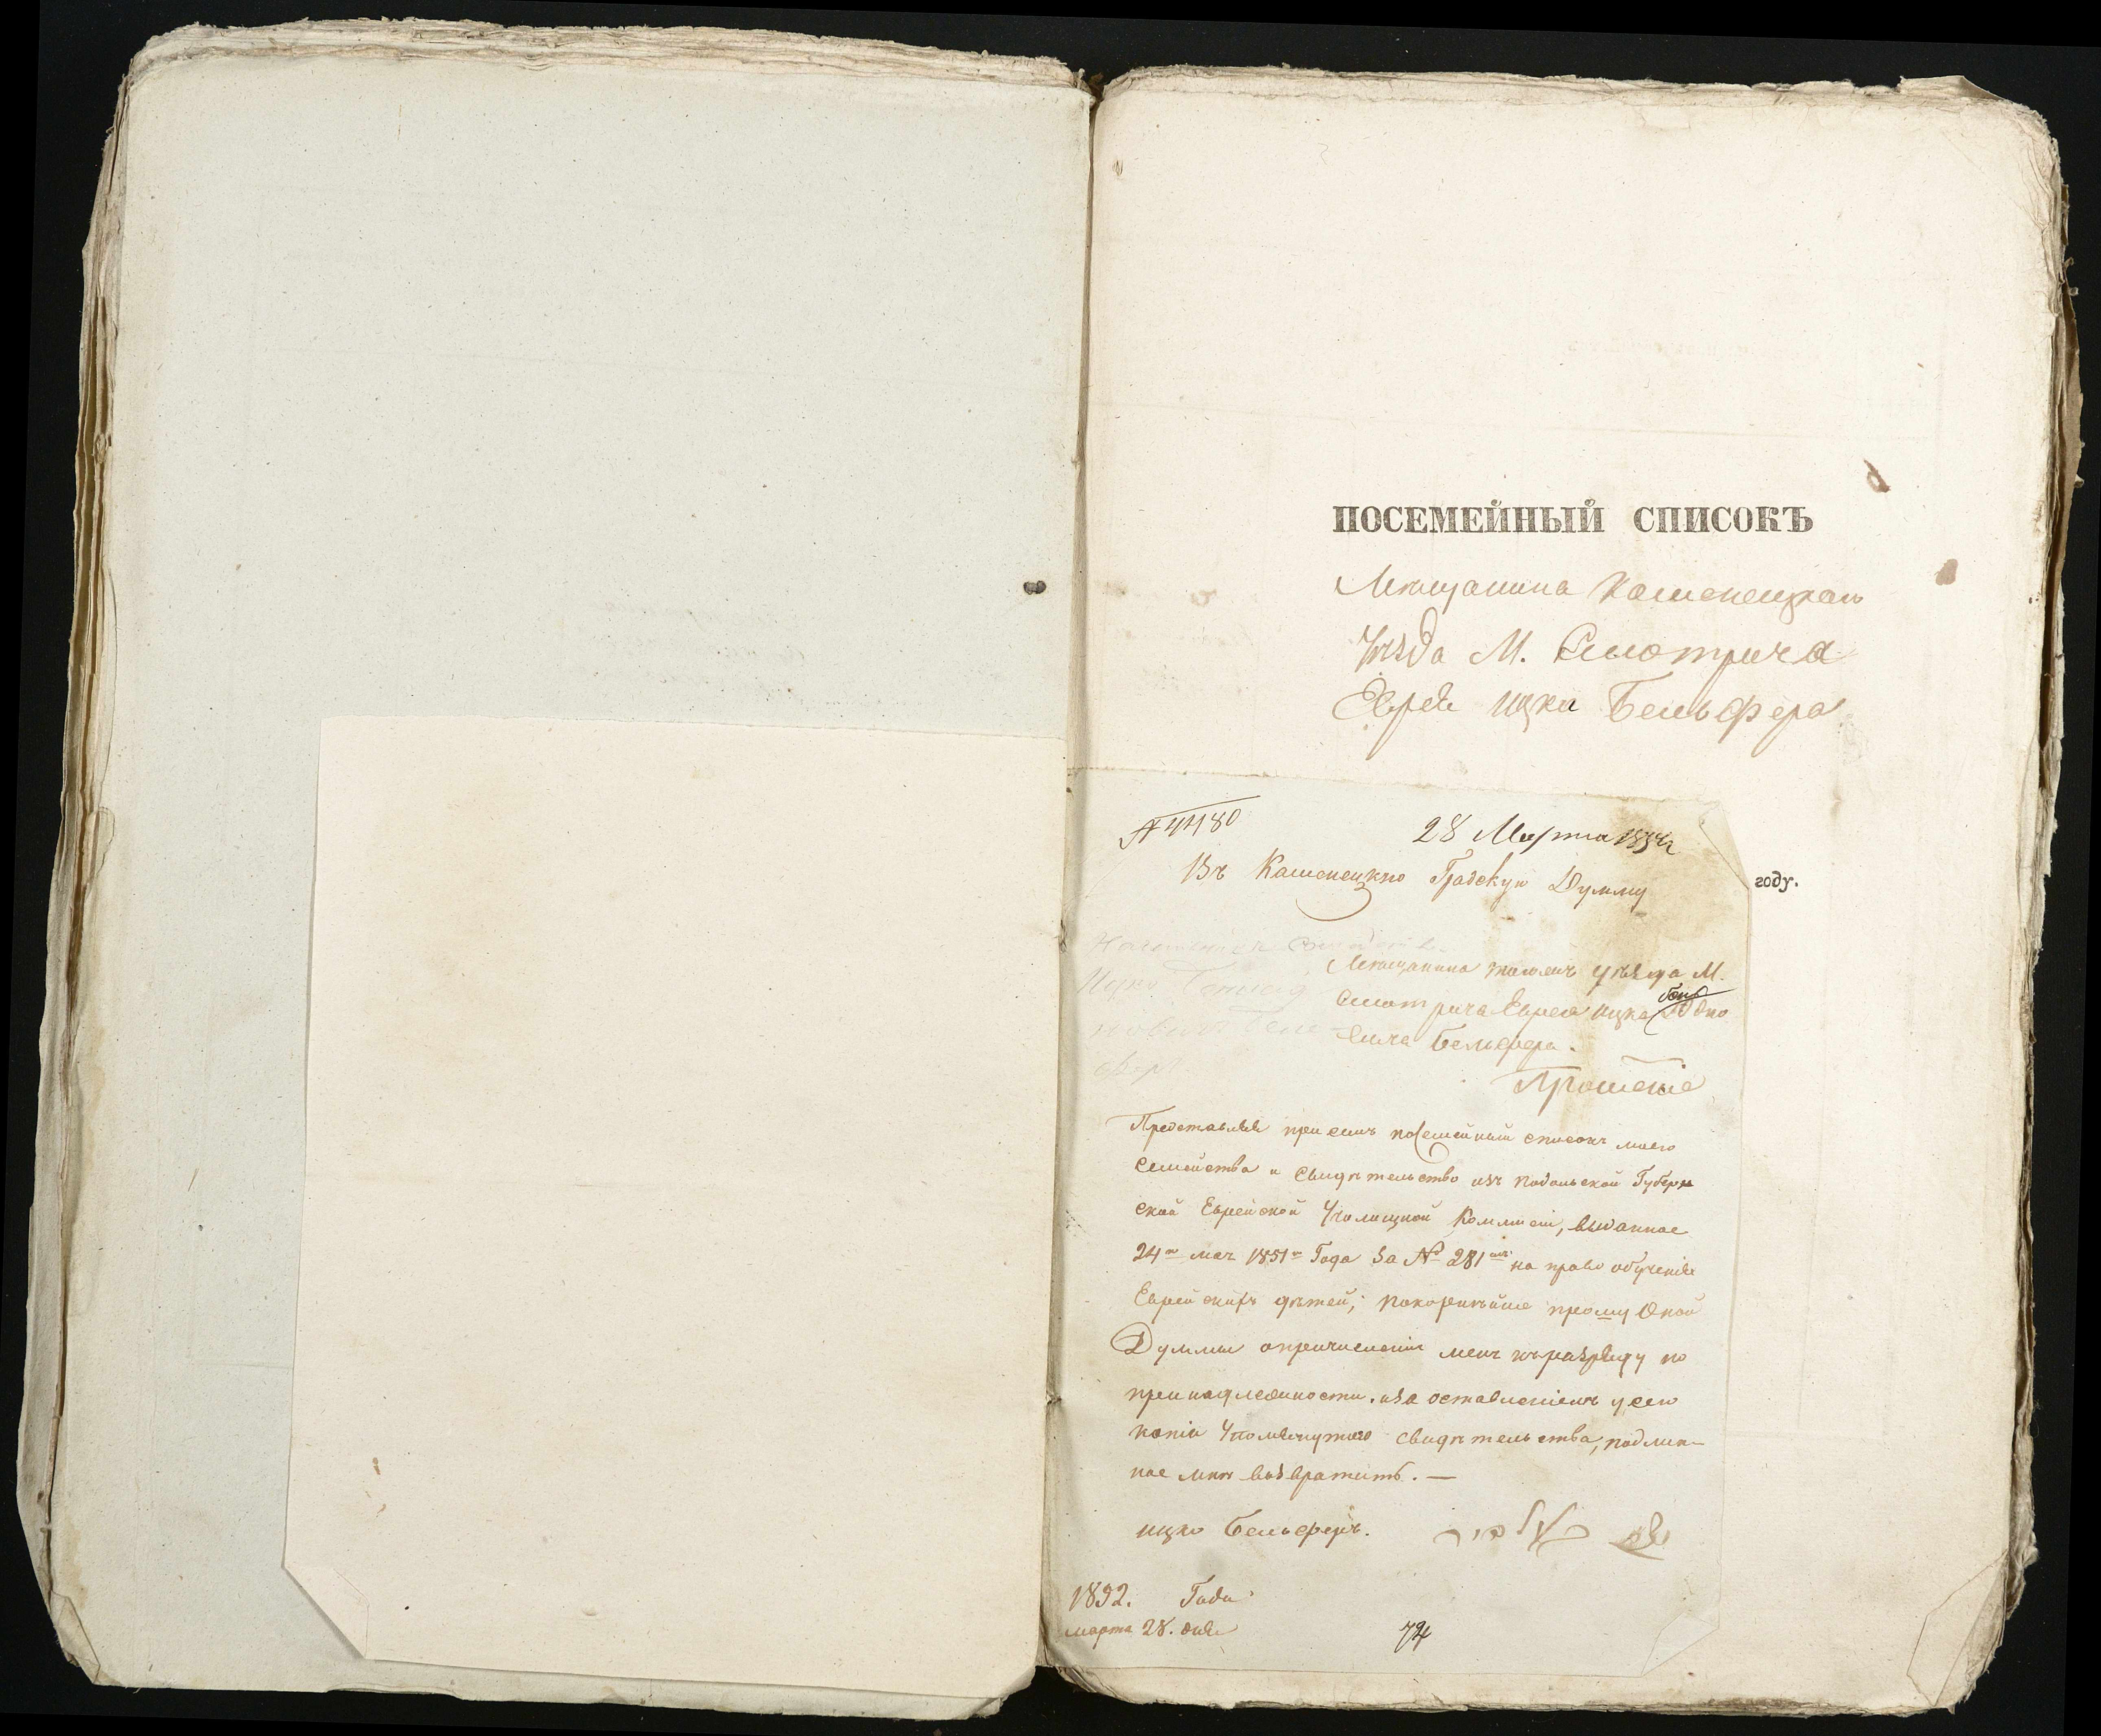 ПОСЕМЕЙНЫЙ СПИСОКЪ
Мѣщанина Каменецкаго
Уѣзда М. Смотрича
Еврея Ицки Бельфера
году.
№ 4480
28 Марта 1852
Въ Каменецкую Градскую Думму
Мѣщанина Камен: уѣзда М.
Смотрича Еврея Ицка
Бельфера.
Прошеніе
Представляя при семъ посемейный списокъ моего
семейства и свидѣтельство изъ Подольской Губерн
ской Еврейской Училищной Коммисіи, выданное
24го мая 1851го Года за № 281мъ на право обученія
Еврейскихъ дѣтей; покорнѣйше прошу Оной
Думмы о причисленіи меня къ разряду по
принадлежности. и за оставленіемъ у сего
копіи Упомянутаго свидѣтельства, подлин-
ное мнѣ возвратить. —
Ицко Бельферъ.
1852. Года
марта 28. дня
74